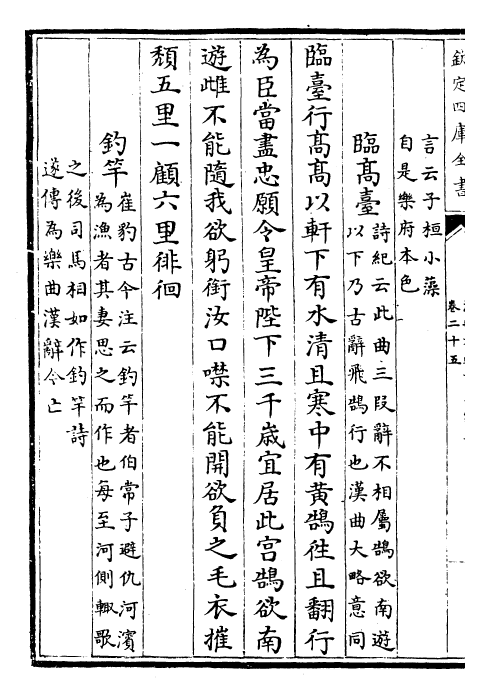 欽定四庫全書
卷二十五
言云子桓小藻
自是樂府本色
臨髙臺
詩紀云此曲三段辭不相屬鵠欲南遊
以下乃古辭飛鵠行也漢曲大略意同
臨臺行髙髙以軒下有水清且寒中有黄鵠徃且翻行
為臣當盡忠願令皇帝陛下三千歳宜居此宫鵠欲南
遊雌不能隨我欲躬銜汝口噤不能開欲負之毛衣摧
頹五里一顧六里徘徊
釣竿
崔豹古今注云釣竿者伯常子避仇河濱
為漁者其妻思之而作也每至河側輙歌
之後司馬相如作釣竿詩
遂傳為樂曲漢辭今亡